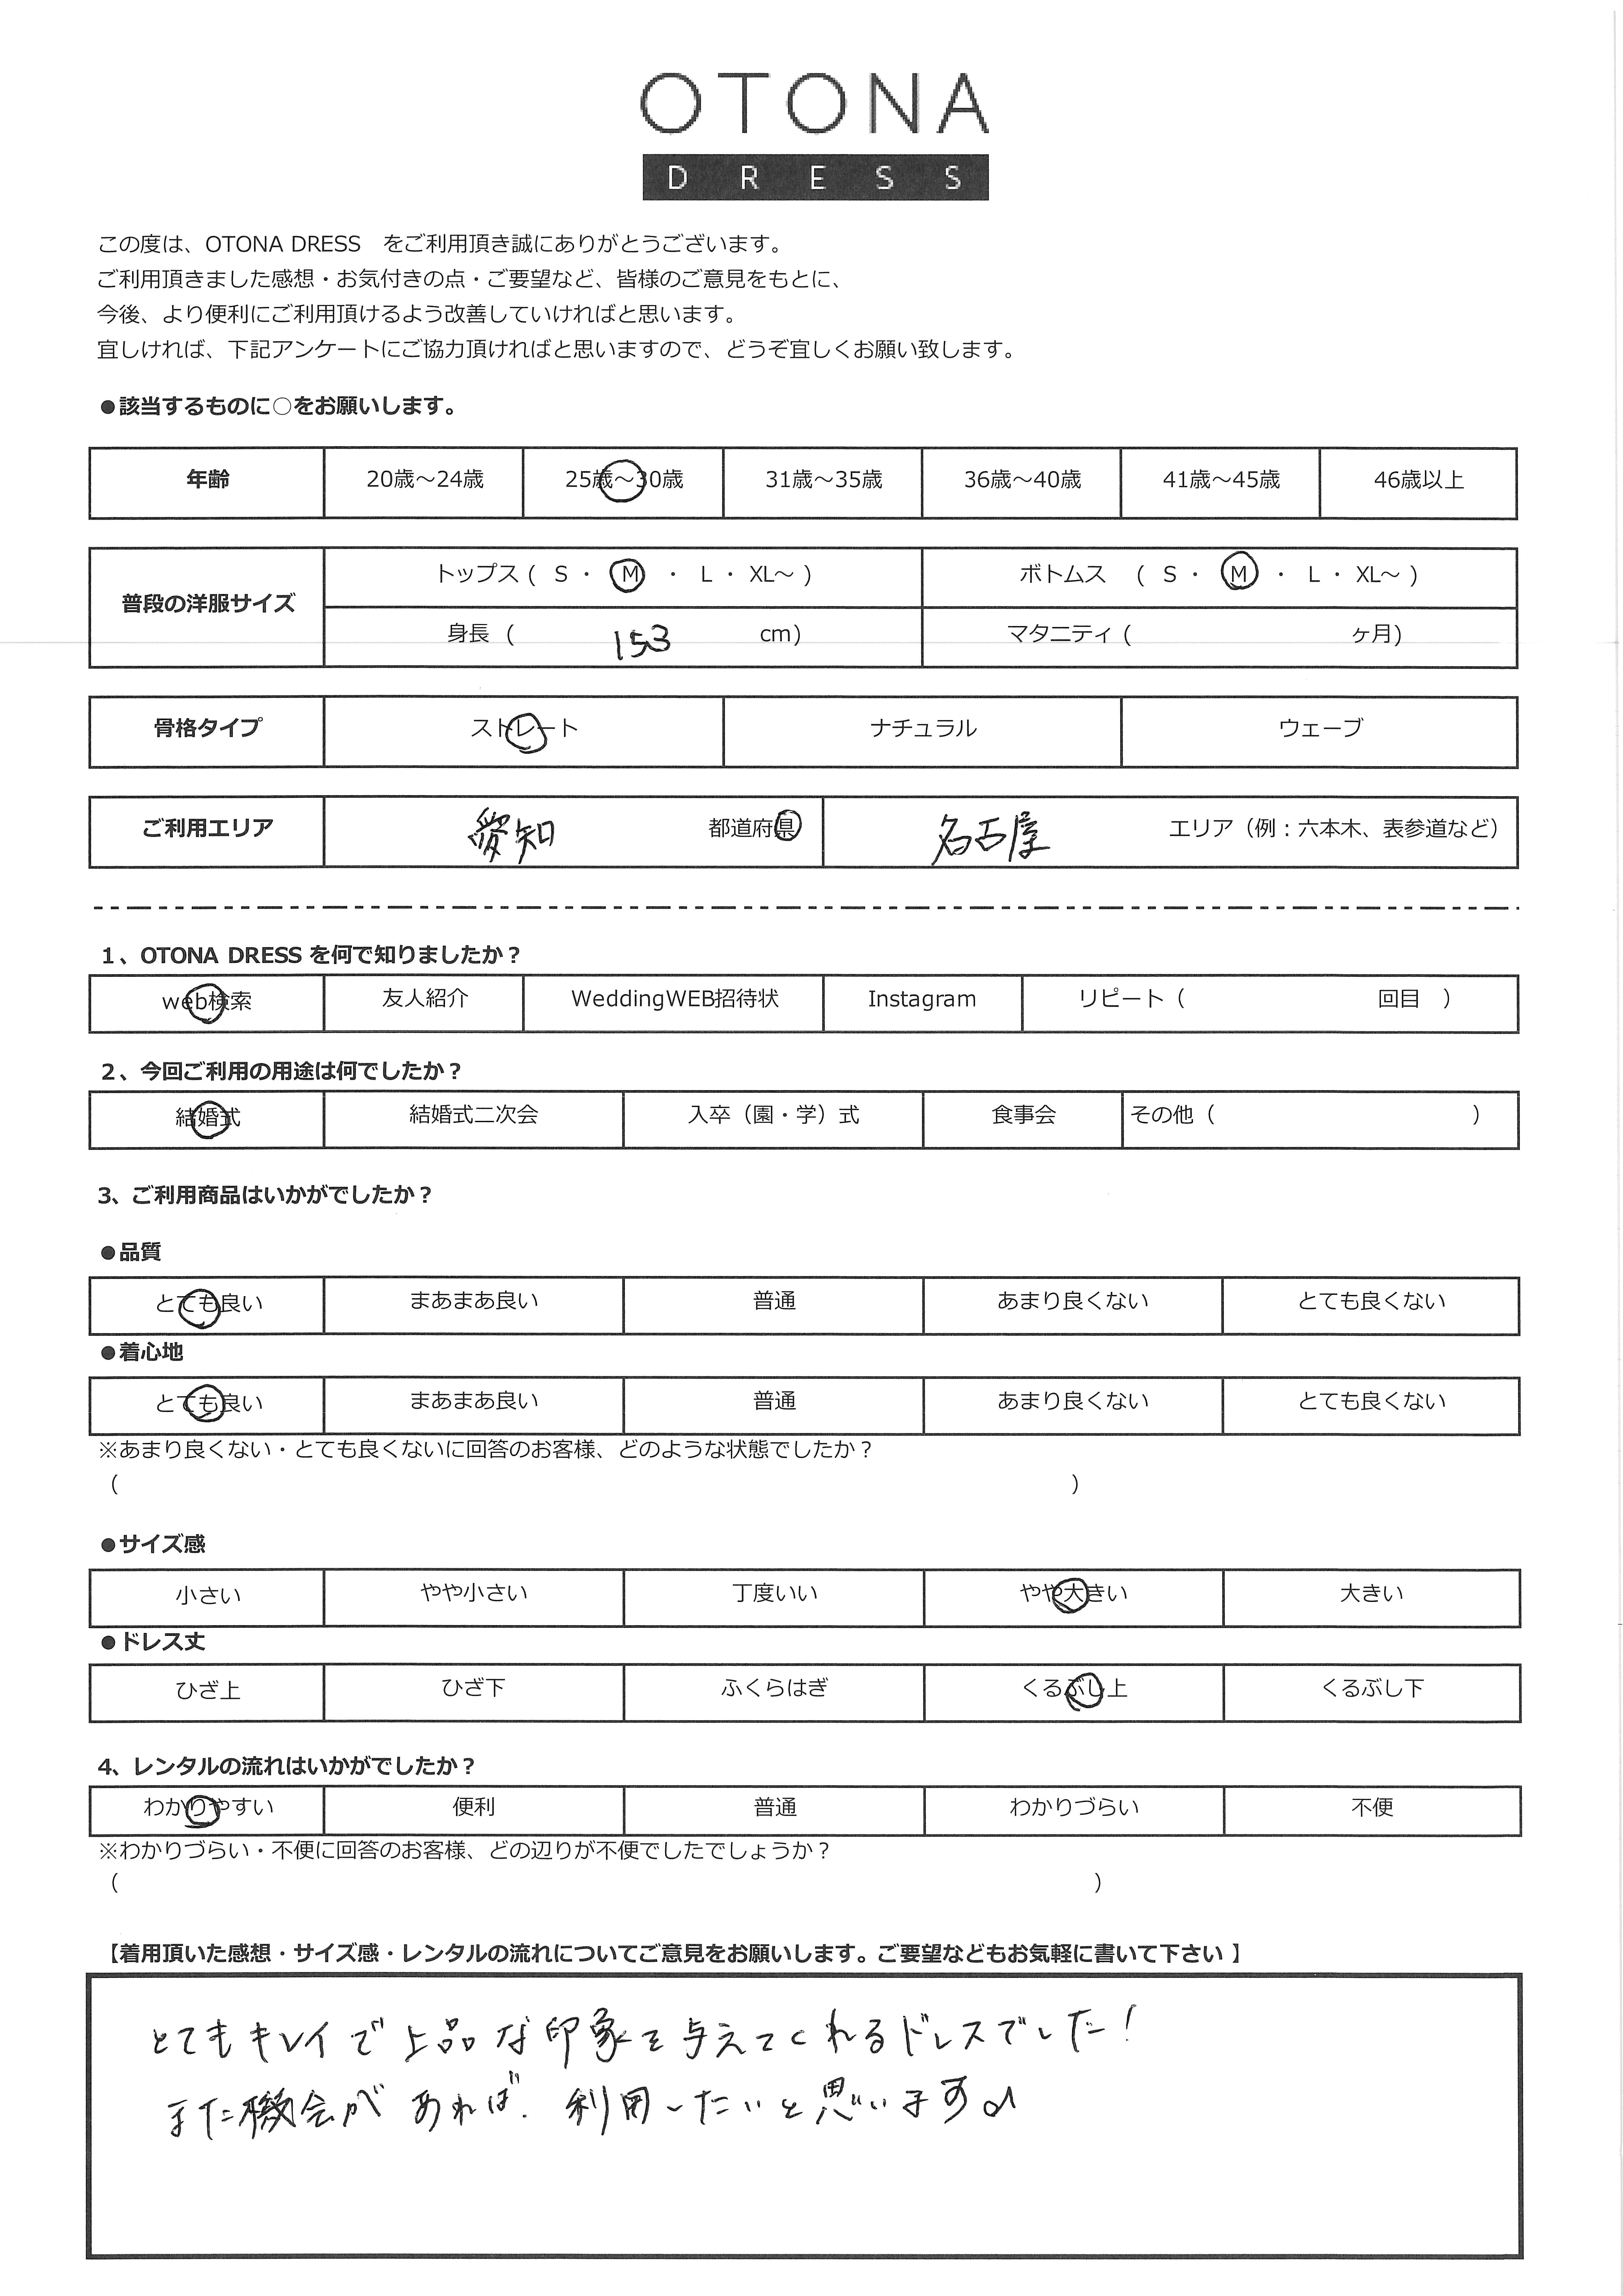 OTONA
DRESS
この度は、OTONA DRESS　をご利用頂き誠にありがとうございます。
ご利用頂きました感想・お気付きの点・ご要望など、皆様のご意見をもとに、
今後、より便利にご利用頂けるよう改善していければと思います。
宜しければ、下記アンケートにご協力頂ければと思いますので、どうぞ宜しくお願い致します。
●該当するものに○をお願いします。
年齢 20歳～24歳 25歳～30歳 31歳～35歳 36歳～40歳 41歳～45歳 46歳以上
普段の洋服サイズ トップス ( S ・ M ・ L ・ XL～ ) ボトムス ( S ・ M ・ L ・ XL～ )
身長 ( 153 cm) マタニティ ( ヶ月)
骨格タイプ ストレート ナチュラル ウェーブ
ご利用エリア 愛知 都道府県 名古屋 エリア（例：六本木、表参道など）
1、OTONA DRESS を何で知りましたか？
web検索 友人紹介 WeddingWEB招待状 Instagram リピート（ 回目 ）
2、今回ご利用の用途は何でしたか？
結婚式 結婚式二次会 入卒（園・学）式 食事会 その他（ ）
3、ご利用商品はいかがでしたか？
●品質
とても良い まあまあ良い 普通 あまり良くない とても良くない
●着心地
とても良い まあまあ良い 普通 あまり良くない とても良くない
※あまり良くない・とても良くないに回答のお客様、どのような状態でしたか？
（ ）
●サイズ感
小さい やや小さい 丁度いい やや大きい 大きい
●ドレス丈
ひざ上 ひざ下 ふくらはぎ くるぶし上 くるぶし下
4、レンタルの流れはいかがでしたか？
わかりやすい 便利 普通 わかりづらい 不便
※わかりづらい・不便に回答のお客様、どの辺りが不便でしたでしょうか？
（ ）
【着用頂いた感想・サイズ感・レンタルの流れについてご意見をお願いします。ご要望などもお気軽に書いて下さい 】
とてもキレイで上品な印象を与えてくれるドレスでした！
また機会があれば、利用したいと思います♪